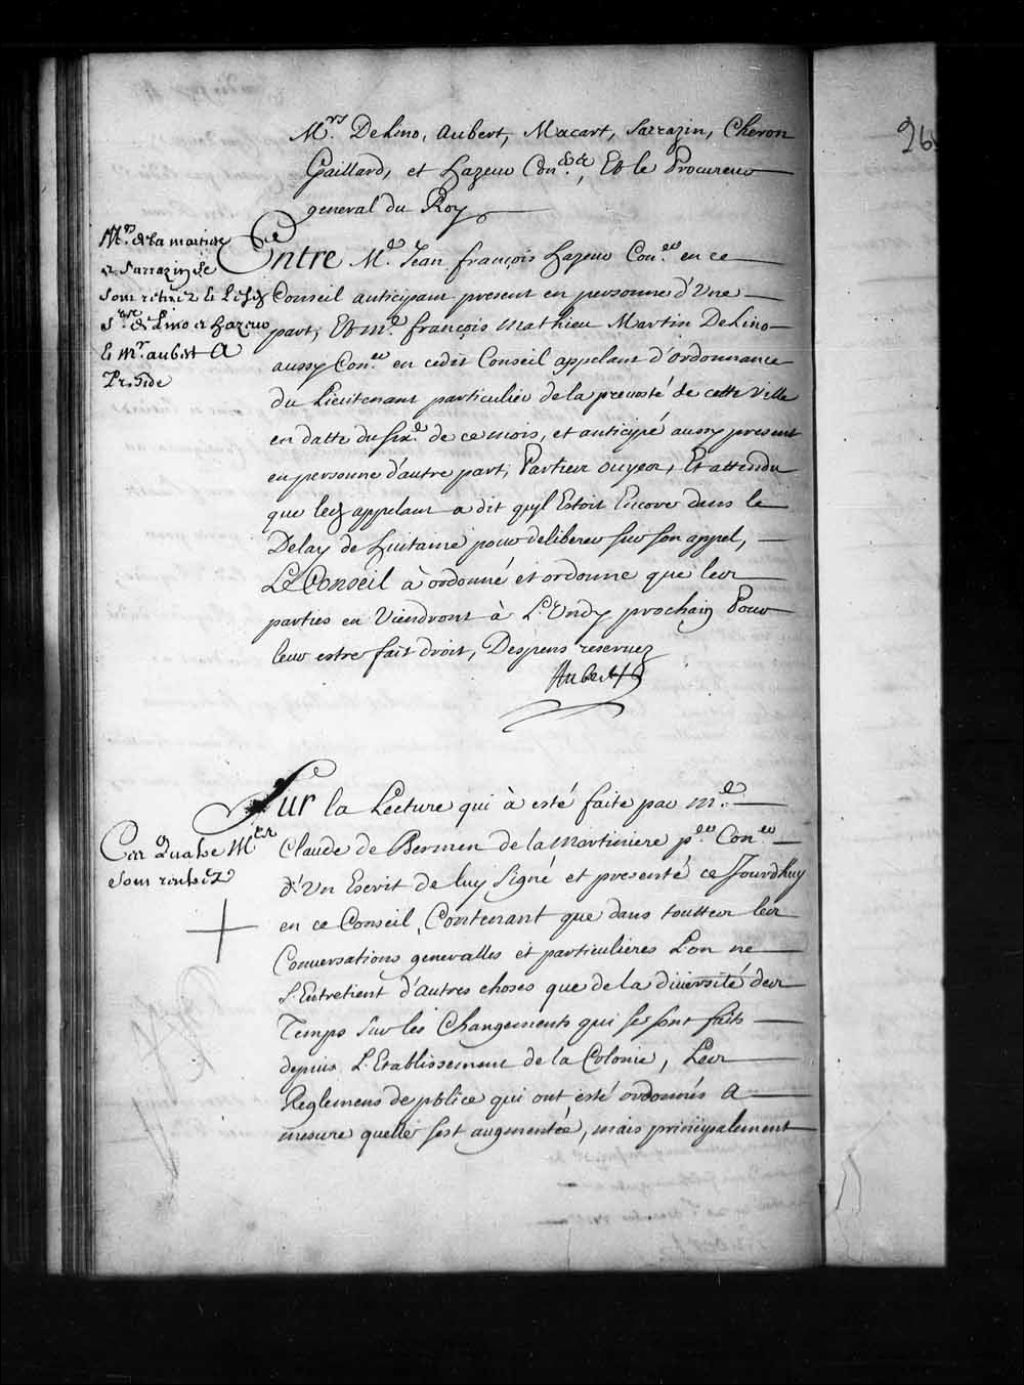 Mrs. DeLino, Aubert, Macart, Sarrazin, Cheron
Gaillard, et hazeur Coners, Et le Procureur
general du Roy
Mrs de la martiniere
et Sarrazin se
sont retirez le
Srs de Lino et hazeur
le mr. aubert A
Preside
Entre Me. Jean françois hazeur Coner en ce
Conseil anticipant present en personne d'Une
part, Et me. françois mathieu Martin DeLino
aussy Coner en cedit Conseil appelant d'ordonnance
du Lieutenant particulier de la prevosté de cette ville
en datte du six.e de ce mois, et anticipé aussy present
en personne d'autre part; Parties ouyes, Et attendu
que led appelant a dit qu'jl Estoit Encore dans le
Delay de huitaine pour deliberer sur son appel,
Le Conseil à ordonné et ordonne que les
parties en Viendront à L'Undy prochain Pour
leur estre fait droit, Despens reservez
Aubert
Sur la Lecture qui à esté faite par me.
Claude de Bermen de la martiniere p.er Coner
d'Un Escrit de luy Signé et presenté ce Jourdhuy
en ce Conseil, Contenant que dans touttes les
Conversations generalles et particulieres L'on ne
S'Entretient d'autres choses que de la diversité des
Temps Sur les Changements qui se sont faits
depuis L'Etablissement de la Colonie, Les
Reglemens de police qui ont esté ordonnés A
mesure quelle s'est augmentée, mais principalement
Ces Quatre Mers
sont
26